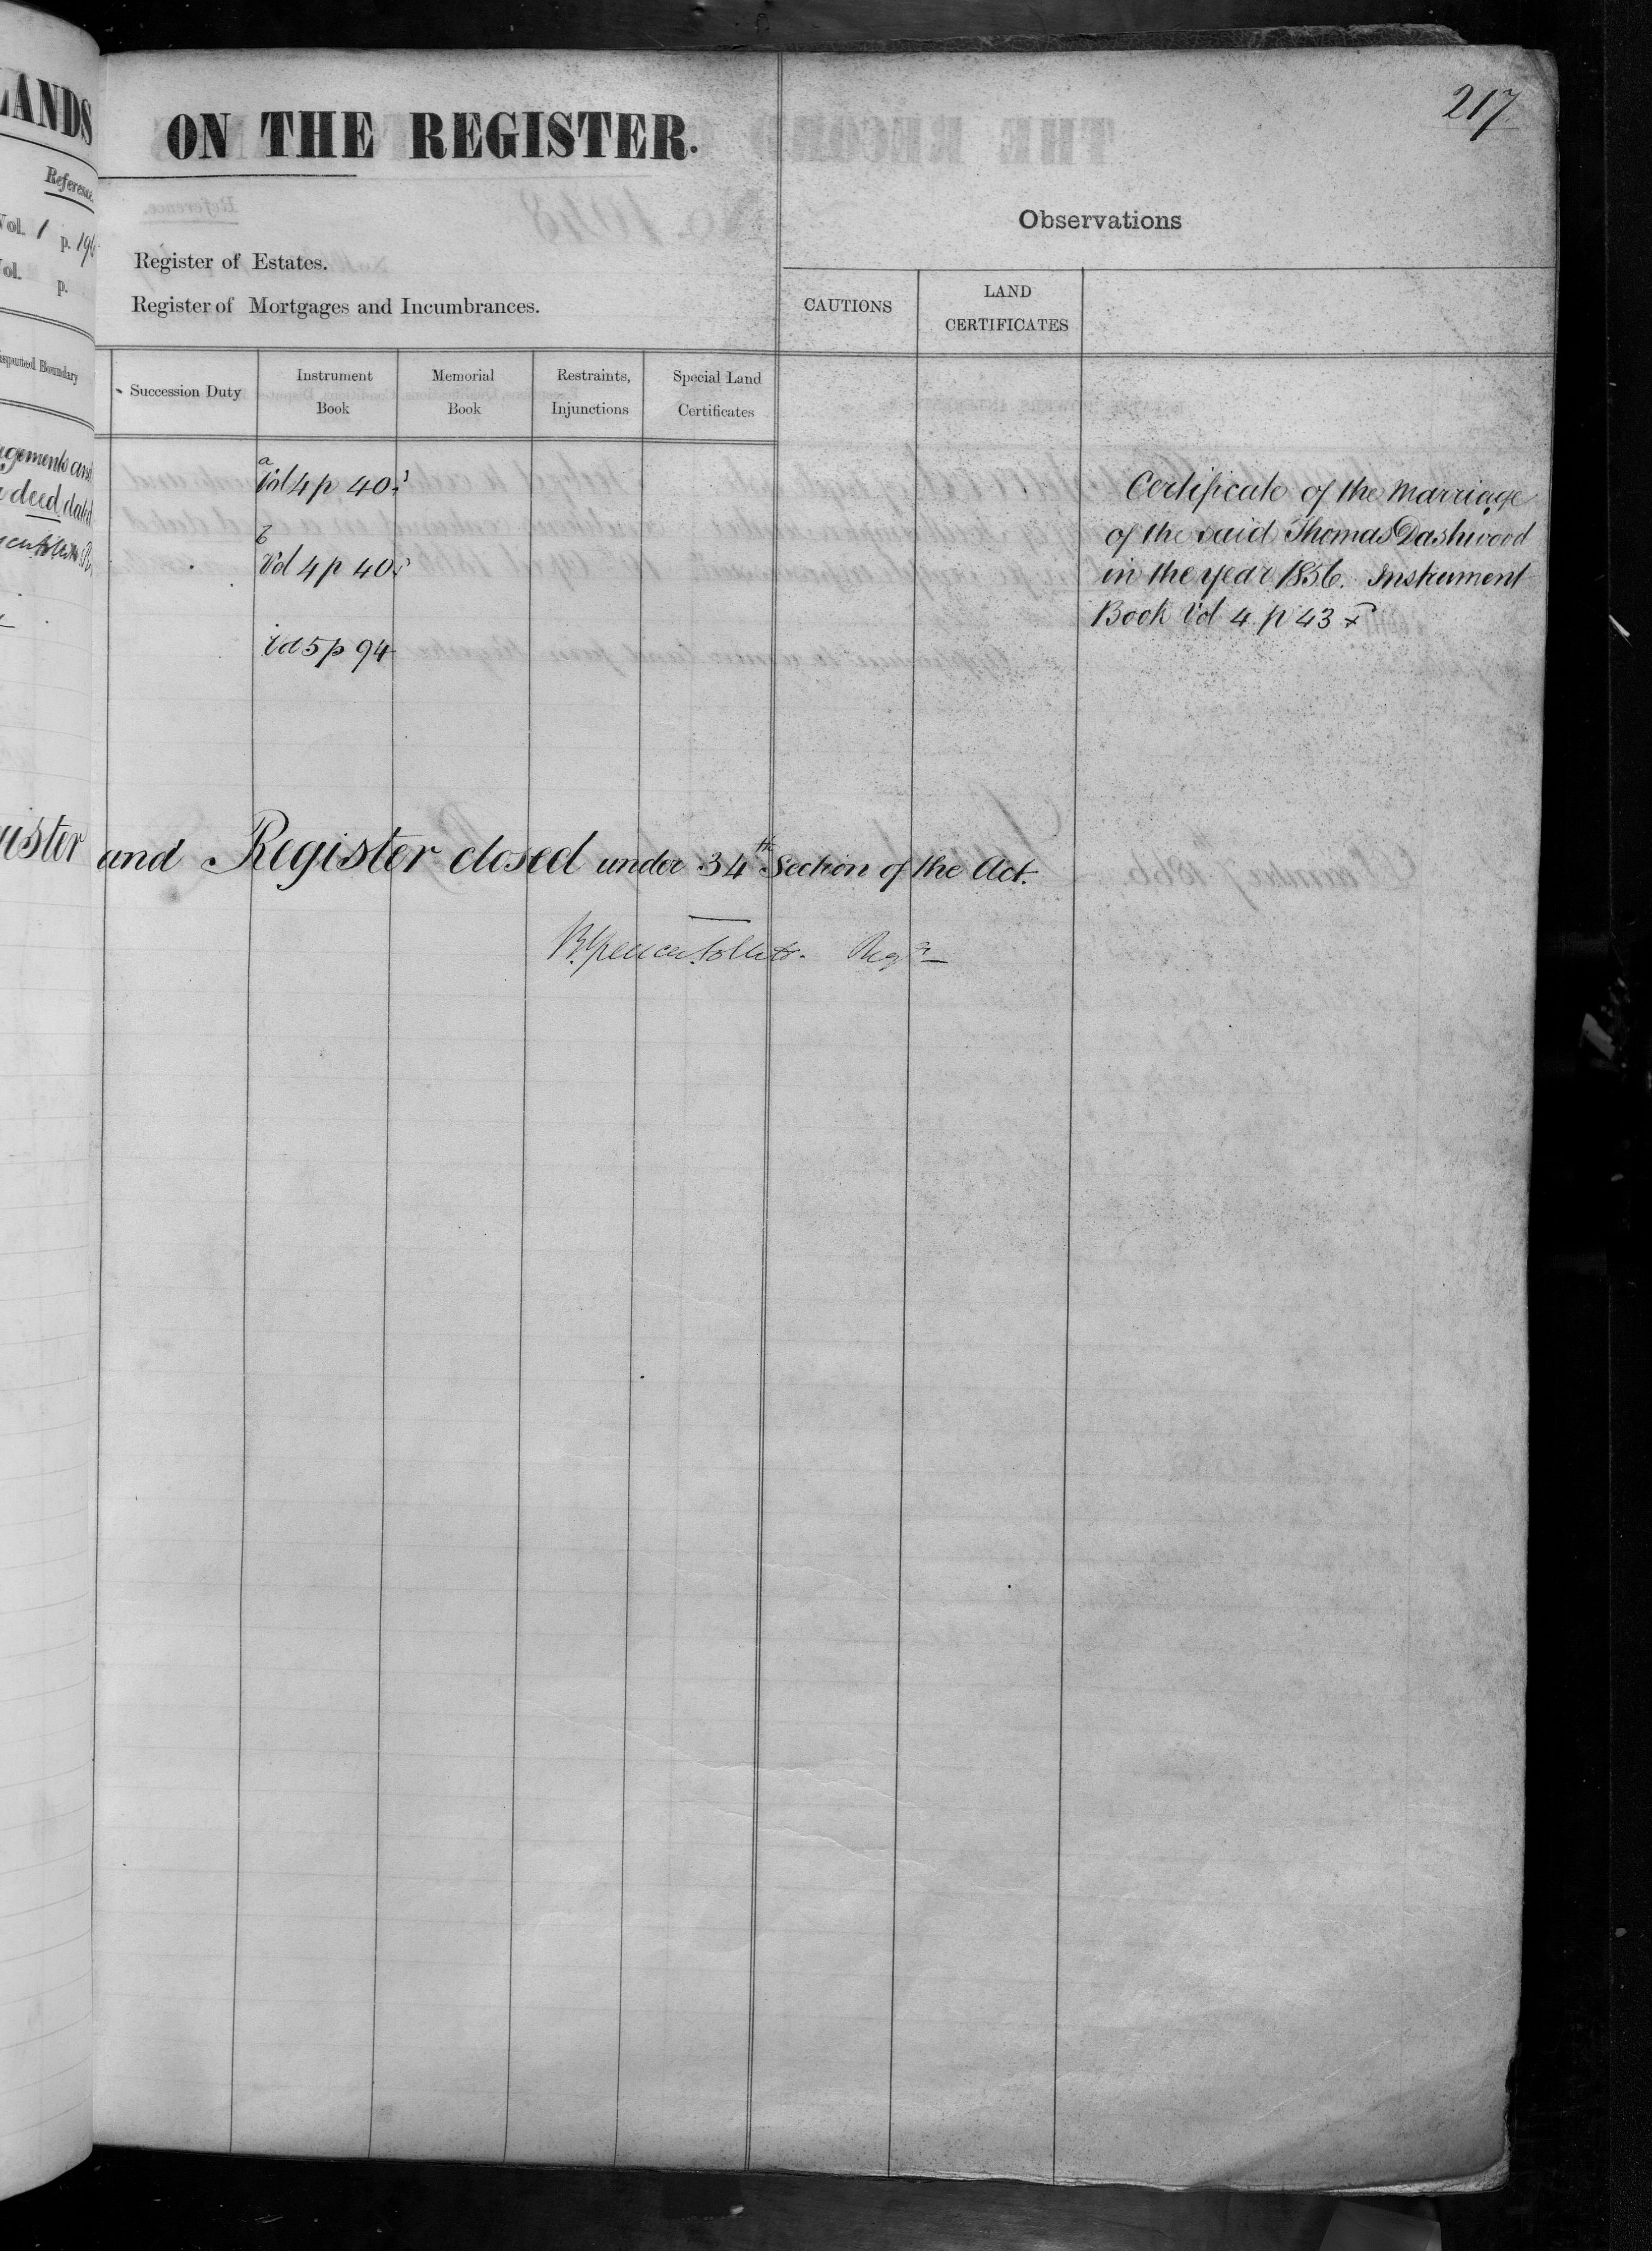 LANDS
Reference.
Vol. 1 p. 196
Vol. p.
Disputed Boundary
deed dated
217
ON THE REGISTER.
Observations
Register of Estates.
Register of Mortgages and Incumbrances.
CAUTIONS
LAND
CERTIFICATES
Succession Duty
Instrument
Book
Memorial
Book
Restraints,
Injunctions
Special Land
Certificates
a
Vol 4 p 40
b
Vol 4 p 40
Vol 5 p 94
Certificate of the Marriage
of the said Thomas Dashwood
in the year 1856. Instrument
Book Vol 4 p 43
and Register closed under 34th Section of the Act.
Regr